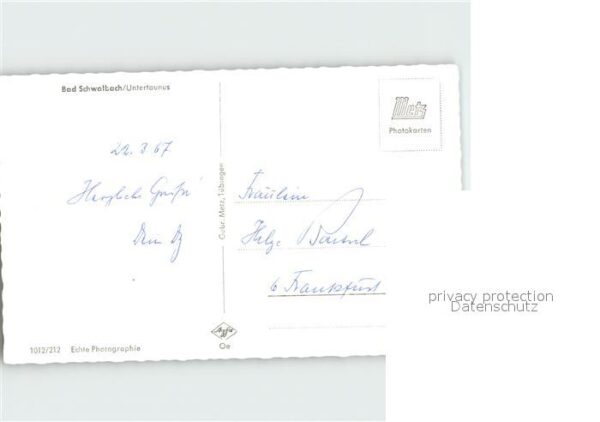 Bad Schwalbach/Untertaunus
22.8.67
Herzliche Grüße
Gebr. Metz, Tübingen
Metz
Photokarten
Fräulein
Helge
6 Frankfurt
Agfa
Oe
1012/212 Echte Photographie
privacy protection
Datenschutz